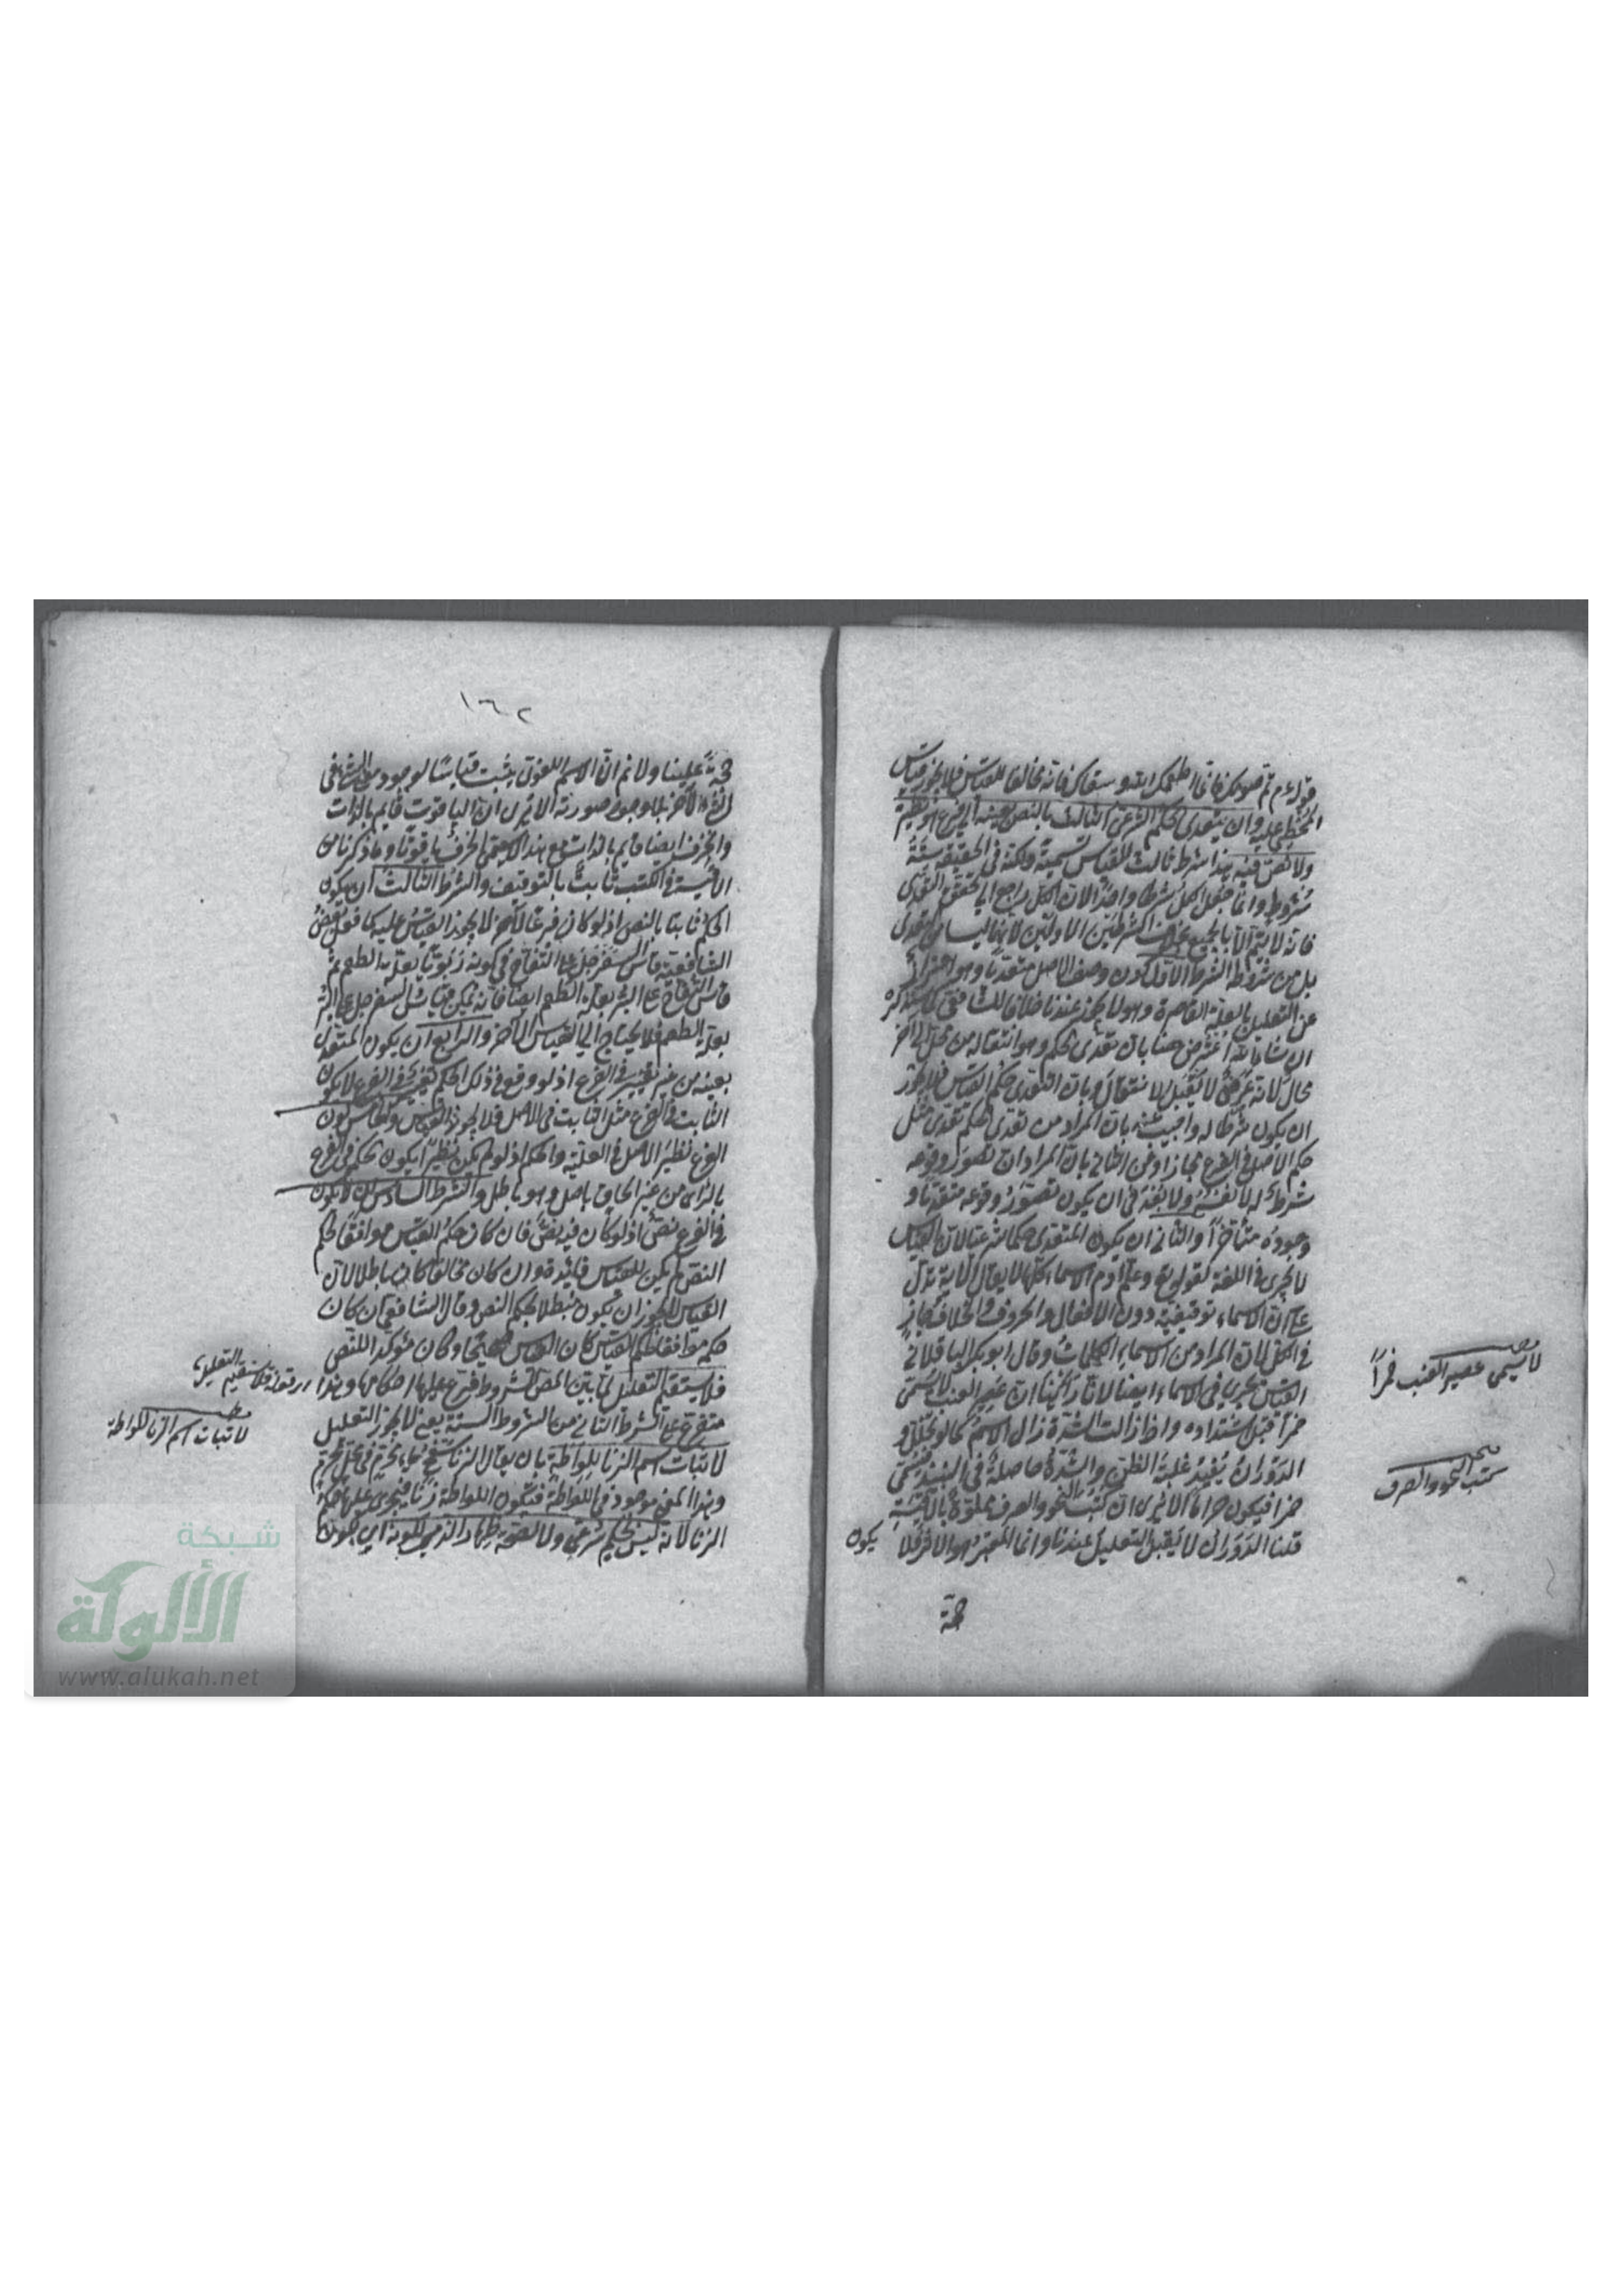 قوله م تم صومك فانما اطعمك الله وسقاك فانه مخالفا للقياس فلا يجوز قياس
المخطئ عليه وان يتعدى الحكم الشرعي الثابت بالنص بعينه الى فرع هو نظيره
ولا نص فيه هذا شرط ثالث للقياس تسمية ولكنه في الحقيقة ستة
شروط وانما جعل الكل شرطا واحدا لان الكل راجع الى تحقق التعدى
فانه لا يتم الا بالجميع بخلاف الشرطين الاولين لانهما ليسا من التعدى
بل من شروط الشرط الاول كون وصف الاصل متعديا وهو احتراز
عن التعليل بالعلة القاصرة وهو لا يجوز عندنا خلافا للشافعي كما سنذكره
ان شاء الله اعترض ههنا بان تعدى الحكم وهو انتقاله من محل الى آخر
محال لانه عرض لا يقبل الانتقال وبان التعدى حكم القياس فلا يجوز
ان يكون شرطا له واجيب عنه بان المراد من تعدى الحكم تعدى مثل
حكم الاصل في الفرع مجازا وعن الثاني بان المراد ان تصور وقوعه
شرط له لا نفسه ولا بعد في ان يكون تصور وقوعه متقدما و
وجوده متأخرا والثاني ان يكون المتعدى حكما شرعيا لان القياس
لا يجرى في اللغة لقوله تع وعلم آدم الاسماء كلها لا يقال الآية تدل
على ان الاسماء توقيفية دون الافعال والحروف والخلاف جاز
في الكل لان المراد من الاسماء الكلمات وقال ابو بكر الباقلاني
القياس يجرى في الاسماء ايضا لانا رأينا ان عصير العنب لا يسمى
خمرا قبل اشتداده واذا زالت الشدة زال الاسم كما لو تخلل و
الدوران يفيد غلبة الظن والشدة حاصلة في النبيذ فيسمى
خمرا فيكون حراما الا يرى ان كتب النحو والصرف مملوة بالاقيسة
قلنا الدوران لا يقبل التعليل عندنا وانما المعتبر هو الاثر فلا يكون
حجة
لا يسمى عصير العنب خمرا
كتب النحو والصرف
١٦٢
حجة علينا ولا نم ان الاسم اللغوي يثبت قياسا لوجود معنى الشئ في
الشئ الآخر بلا وجود صورته الا يرى ان الياقوت قايم بالذات
والخزف ايضا قايم بالذات مع هذا لا يسمى الخزف ياقوتا وما ذكرنا من
الاقيسة في الكتب ثابت بالتوقيف والشرط الثالث ان يكون
الحكم ثابتا بالنص اذ لو كان فرعا لآخر لا يجوز القياس عليه كما فعل بعض
الشافعية قاس السفرجل على التفاح في كونه ربويا بعلة الطعم ثم
قاس التفاح على البر بعلة الطعم ايضا فانه يمكن قياس السفرجل على البر
بعلة الطعم فلا يحتاج الى القياس الآخر والرابع ان يكون المتعدى
بعينه من غير تغيير في الفرع اذ لو وقع في ذلك الحكم تغير في الفرع لا يكون
الثابت في الفرع مثل الثابت في الاصل فلا يجوز القياس والخامس كون
الفرع نظير الاصل في العلة والحكم اذ لو لم يكن نظيرا يكون الحكم في الفرع
بالرأى من غير الحاق باصل وهو باطل والشرط السادس ان لا يكون
في الفرع نص اذ لو كان فيه نص فان كان حكم القياس موافقا لحكم
النص لم يكن للقياس فائدة وان كان مخالفا كان باطلا لان
القياس لا يجوز ان يكون مبطلا لحكم النص وقال الشافعي ان كان
حكمه موافقا لحكم القياس كان القياس صحيحا وكان مؤكدا للنص
فلا يستقيم التعليل لما بين المص الشروط فرع عليها احكامها وهذا
متفرع على الشرط الثاني من الشروط الستة يعني لا يجوز التعليل
لاثبات اسم الزنا للواطة بان يقال الزنا سفح ماء محرم في محل محرم
وهذا المعنى موجود في اللواطة فتكون اللواطة زنا فيجرى عليها حكم
الزنا لانه ليس بحكم شرعي ولا لصحة ظهار الذمي لكونه اي لكون
اى قوله فلا يستقيم التعليل
لاثبات اسم الزنا للواطة
شبكة
الألوكة
www.alukah.net